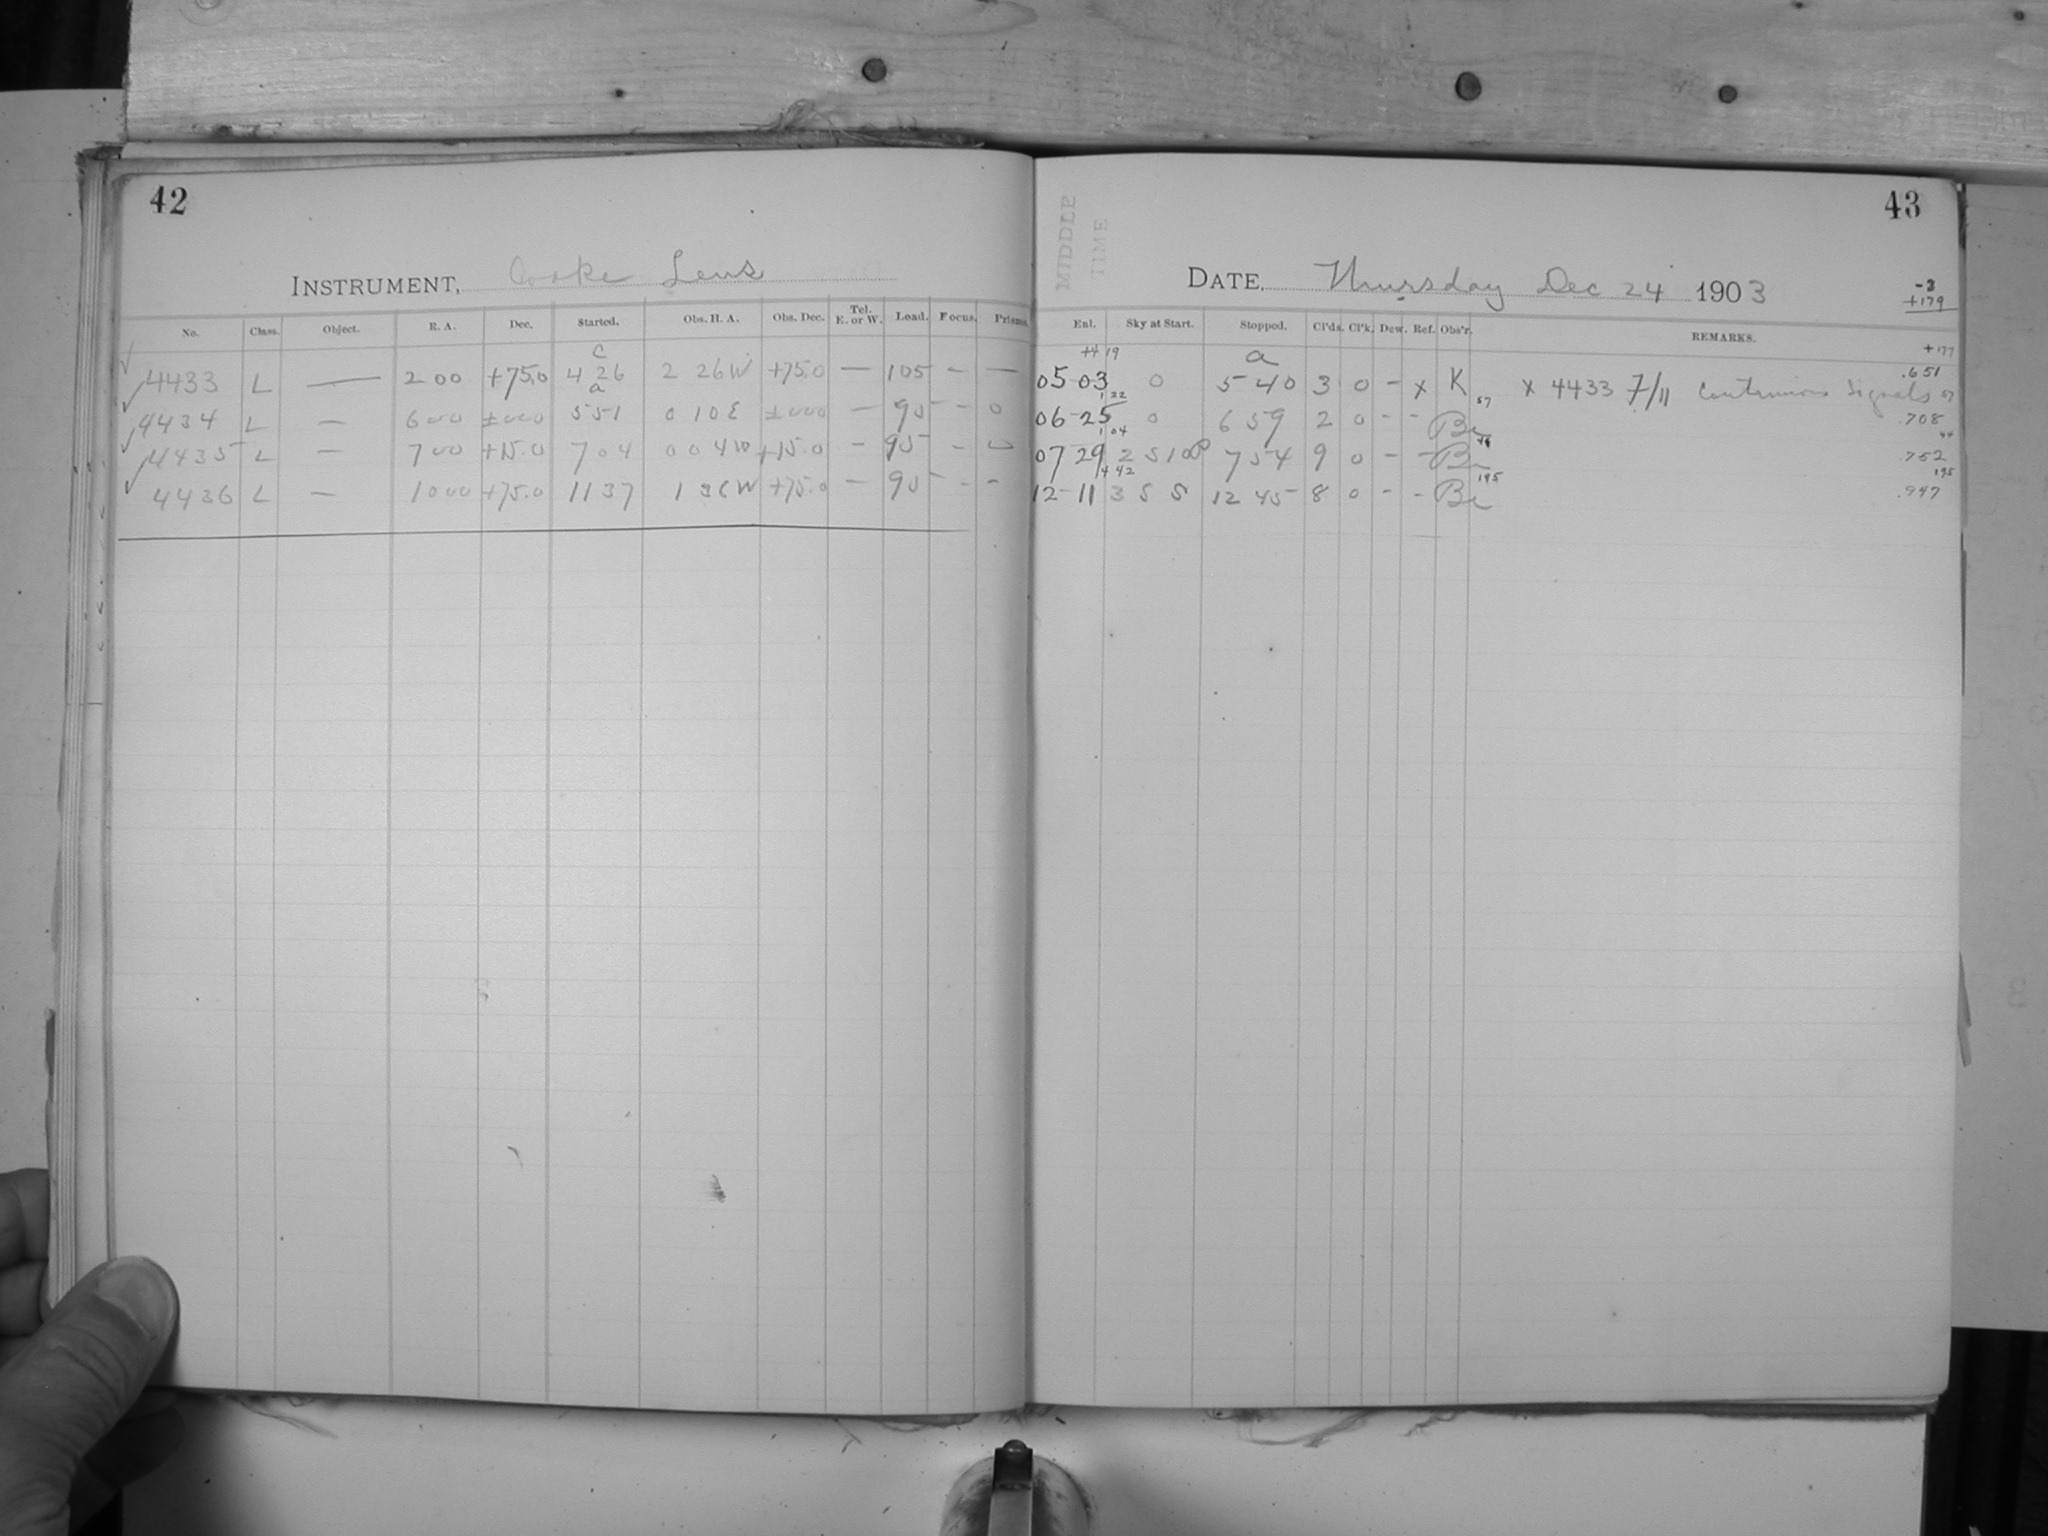 42
INSTRUMENT, Cooke Lens
No. Class. Object. R. A. Dec. Started. Obs. H. A. Obs. Dec. Tel. E. or W. Load. Focus. Prisms.
c
4433 L — 2 00 +75.0 4 26 2 26W +75.0 — 105 - —
a
4434 L — 6 00 ±000 5 51 0 10E ±000 — 90 - 0
4435 L — 7 00 +15.0 7 04 0 04W +15.0 - 95 - 0
4436 L — 10 00 +75.0 11 37 1 36W +75.0 — 90 - -
43
MIDDLE
TIME
DATE, Thursday Dec 24 1903
-3
+179
+177
Enl. Sky at Start. Stopped. Cl'ds. Cl'k. Dew. Ref. Obs'r. REMARKS.
+4 19
a
.651
05 03 0 5 40 3 0 - x K x 4433 7/11 Continuous Signals
1 22
57 57
06 25 0 6 59 2 0 - - Be .708
1 04
44 44
07 29 2 S 10P 7 54 9 0 - - Be .752
4 42
195 195
12-11 3 S S 12 45 8 0 - - Be .947